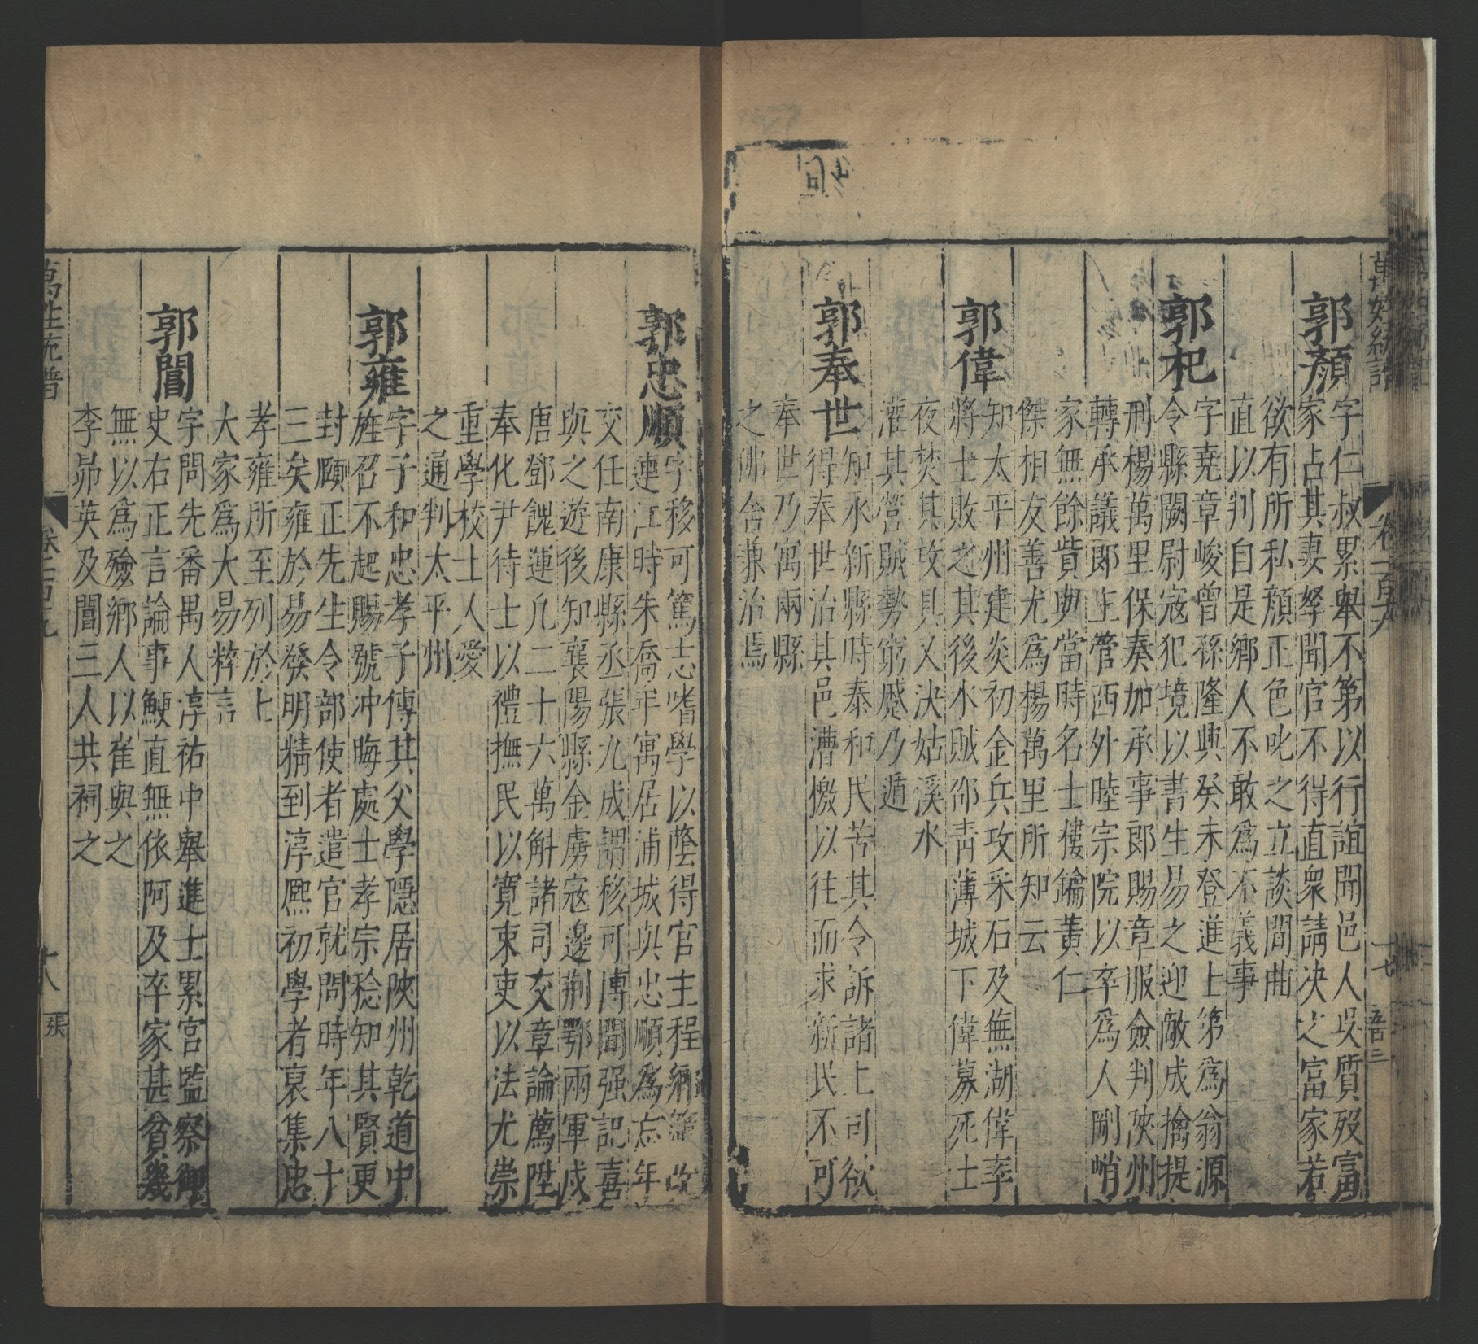 郭顏字仁叔累舉不第以行誼聞邑人吳質歿富
家占其妻孥聞官不得直衆請决之富家若
欲有所私顏正色叱之立談間曲
直以判自是鄉人不敢爲不義事
郭杞字堯章峻曾孫隆興癸未登進士第爲翁源
令縣闕尉寇犯境以書生易之迎敵成擒提
刑楊萬里保奏加承事郎賜章服僉判陝州
轉承議郎主管西外睦宗院以卒爲人剛峭
家無餘貲與當時名士樓鑰黃仁
傑相友善尤爲楊萬里所知云
郭偉知太平州建炎初金兵攻采石及蕪湖偉率
將士敗之其後水賊邵青薄城下偉募死士
夜焚其砦又决姑溪水
灌其營賊勢窮蹙乃遁
郭奉世知永新縣時泰和民苦其令訴諸上司欲
得奉世治其邑漕檄以往而永新民不可
奉世乃寓兩縣
之佛舍兼治焉
郭忠順字移可篤志嗜學以蔭得官主程鄉簿改
連江時朱喬年寓居浦城與忠順爲忘年
交任南康縣丞張九成謂移可博聞强記喜
與之遊後知襄陽縣金虜寇邊荆鄂兩軍戍
唐鄧餽運凡二十六萬斛諸司交章論薦陞
奉化尹待士以禮撫民以寬束吏以法尤崇
重學校士人愛
之通判太平州
郭雍字子和忠孝子傳其父學隱居陝州乾道中
旌召不起賜號冲晦處士孝宗稔知其賢更
封頤正先生令部使者遣官就問時年八十
三矣雍於易發明精到淳熙初學者裒集忠
孝雍所至列於上
大家爲大易粹言
郭閶字問先番禺人淳祐中舉進士累官監察御
史右正言論事鯁直無依阿及卒家甚貧幾
無以爲殮鄉人以崔與之
李昴英及閶三人共祠之